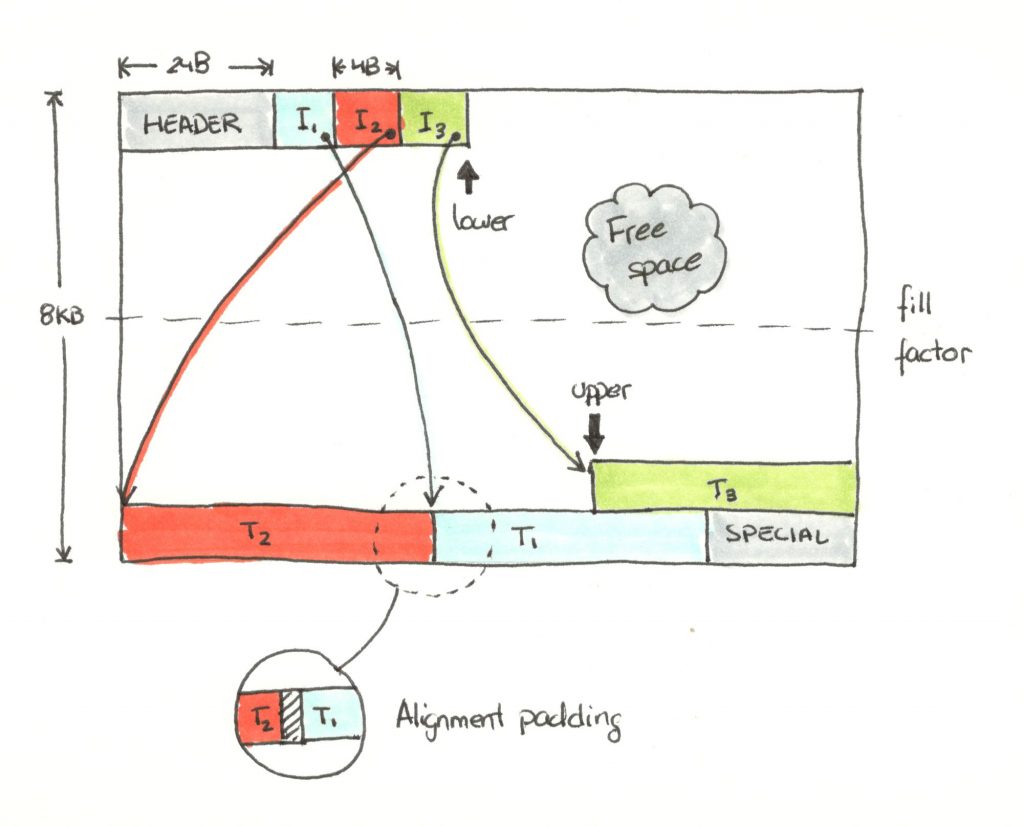 24B
4B
HEADER
I₁
I₂
I₃
lower
Free
space
8KB
fill
factor
upper
T₃
T₂
T₁
SPECIAL
T₂
T₁
Alignment padding